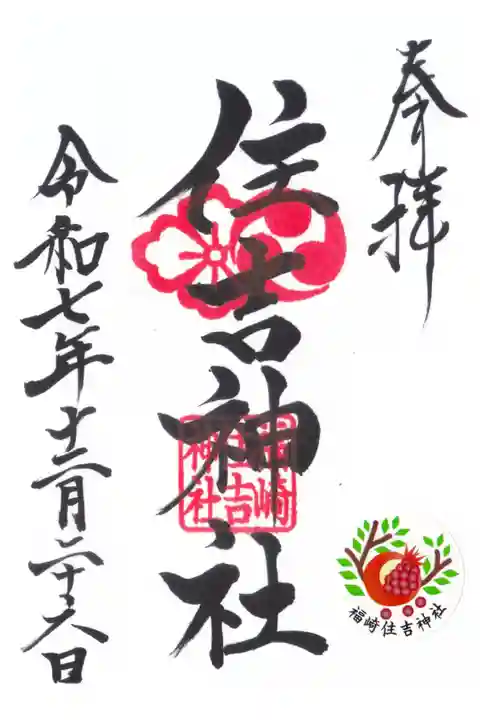 奉拝
住吉神社
福崎
住吉
神社
令和七年十二月二十六日
福崎住吉神社